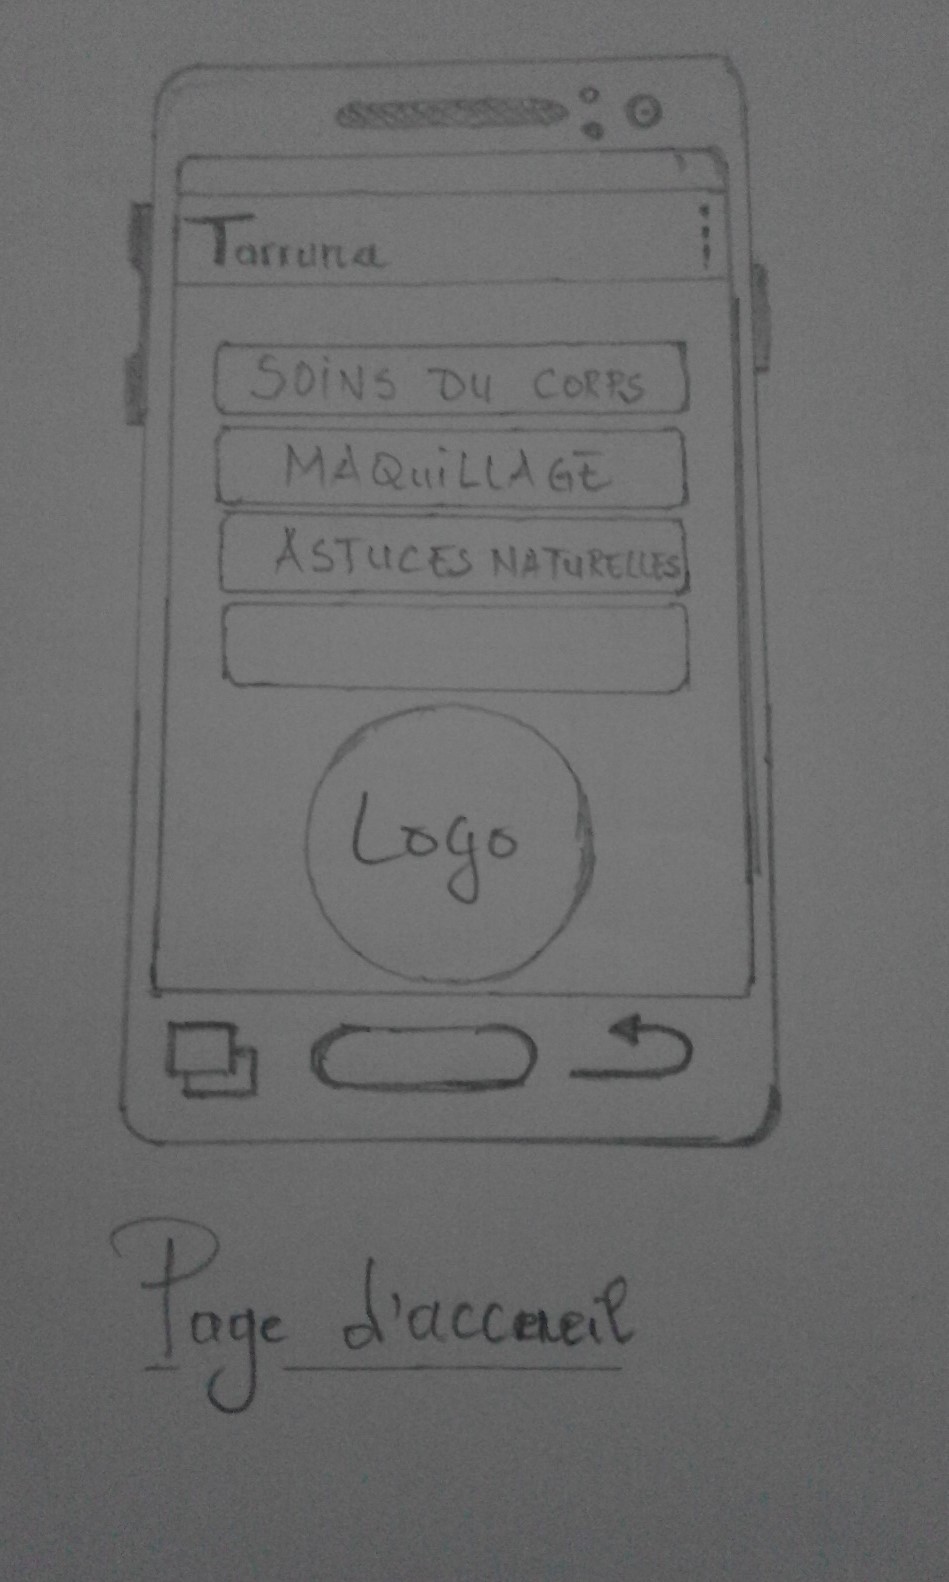 Tarruna
SOINS DU CORPS
MAQUILLAGE
ASTUCES NATURELLES
Logo
Page d'accueil